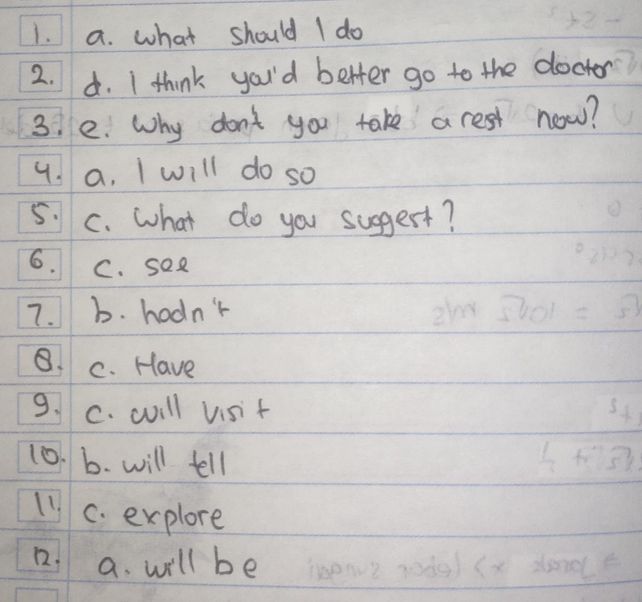 1. a. what should I do
2. d. I think you'd better go to the doctor
3. e. Why don't you take a rest now?
4. a. I will do so
5. c. What do you suggest?
6. c. see
7. b. hadn't
8. c. Have
9. c. will visit
10. b. will tell
11. c. explore
12. a. will be